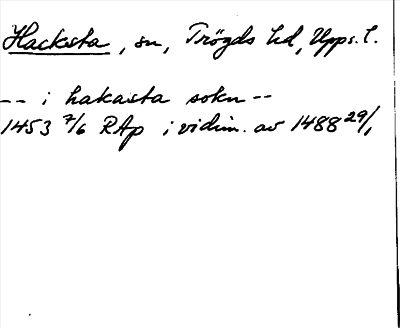 Hacksta, sn, Trögds hd, Upps. l.
-- i hakasta sokn --
1453 7/6 RAp i vidim. av 1488 29/1